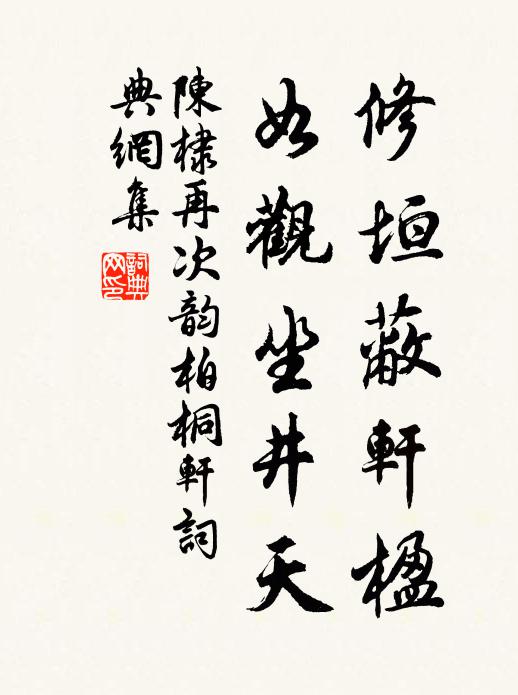 修垣蔽軒楹
如觀坐井天
陳棣再次韵柏桐軒詞
典網集
詞典網印